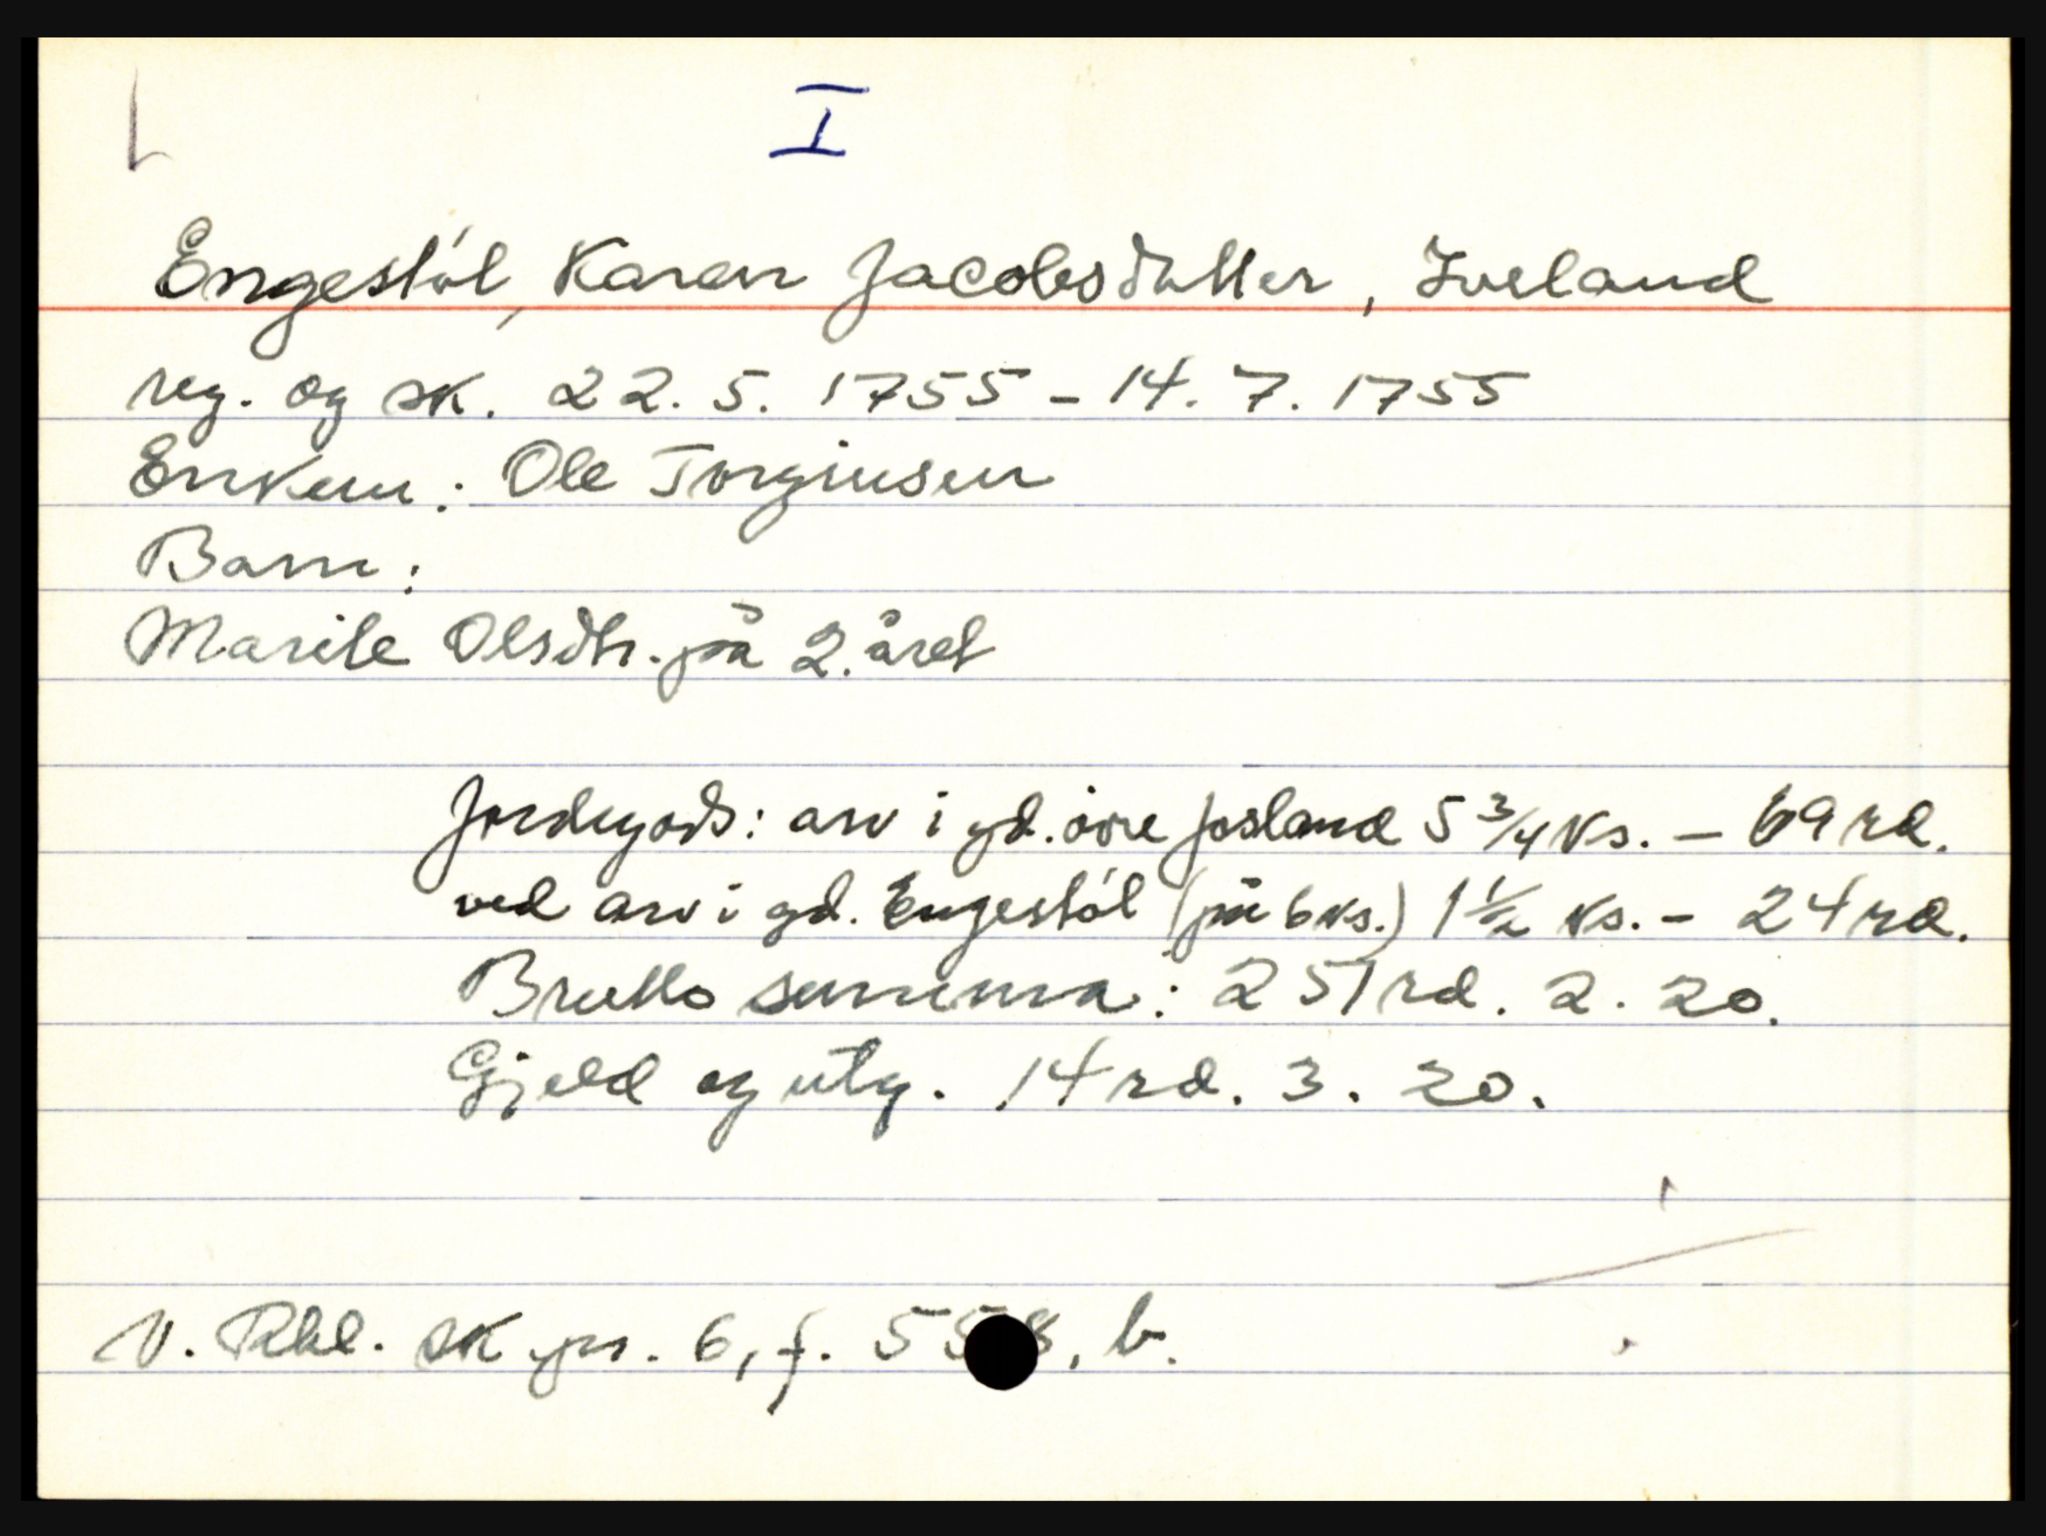 I
Engestöl, Karen Jacobsdatter, Iveland
reg. og sk. 22.5. 1755 - 14. 7. 1755
Enkem: Ole Torgiusen
Barn:
Marite Olsdtr. på 2. året
Jordegods: arv i gd. övre Josland 5 3/4 ks. - 69 rd.
ved arv i gd. Engestöl (på 6 ks.) 1 1/2 ks. - 24 rd.
Brutto summa: 251 rd. 2. 20.
Gjeld og utg. 14 rd. 3. 20.
V. Rbl. sk pr. 6, f. b.